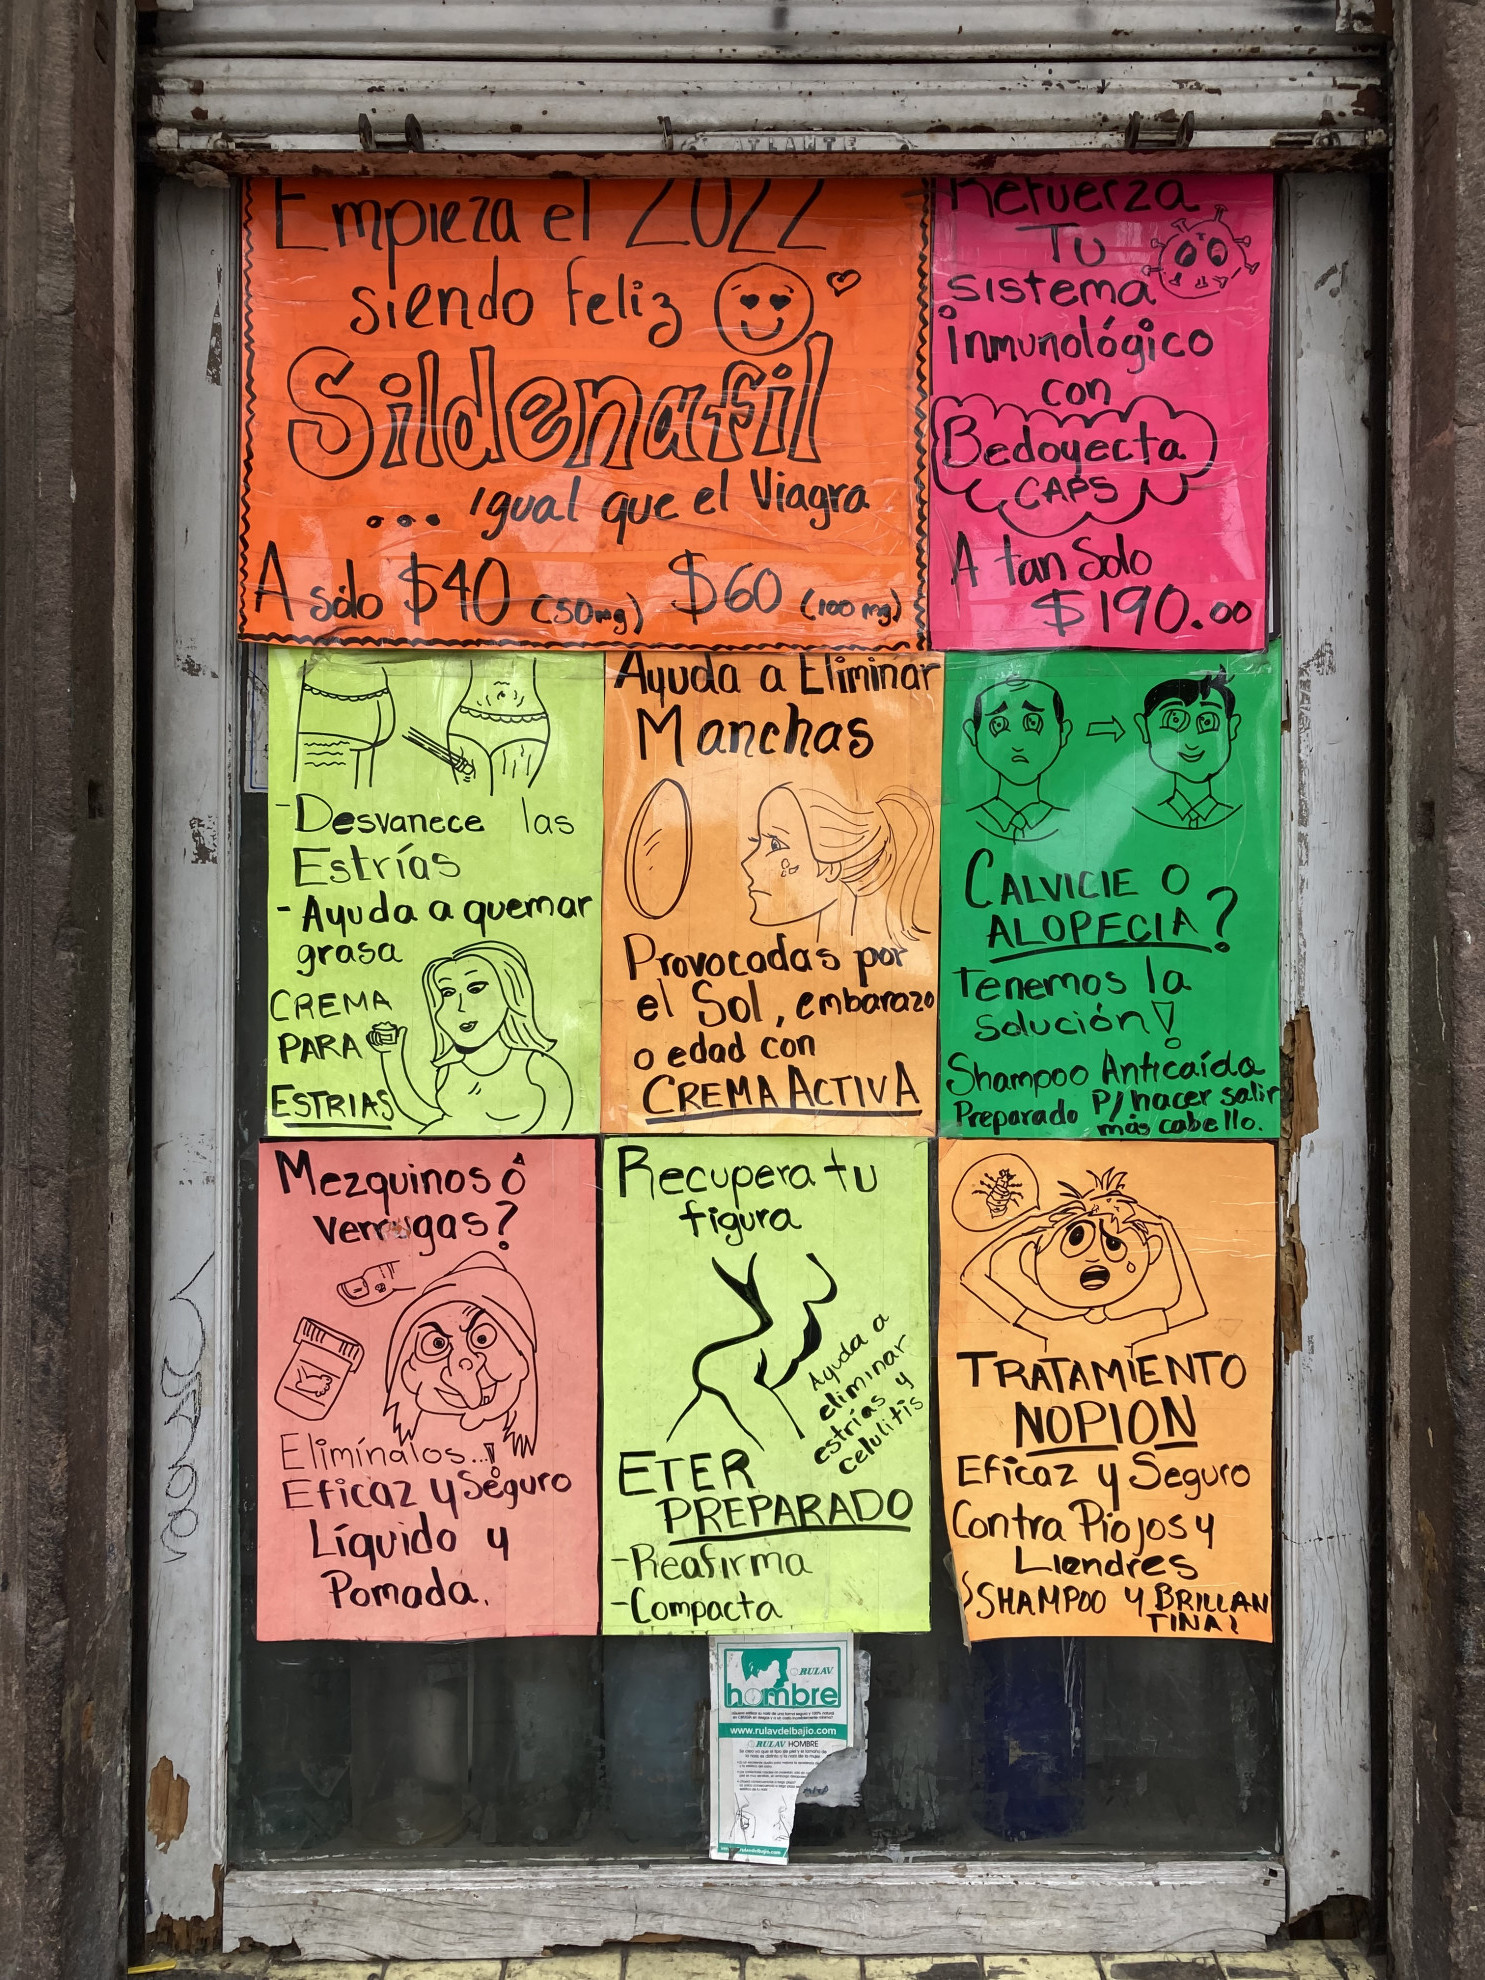 ATLANTE
Empieza el 2022
siendo feliz
Sildenafil
... igual que el Viagra
A sólo $40 (50mg) $60 (100 mg)
Refuerza
Tu
sistema
inmunológico
con
Bedoyecta
CAPS
A tan Solo
$190.00
-Desvanece las
Estrías
-Ayuda a quemar
grasa
CREMA
PARA
ESTRIAS
Ayuda a Eliminar
Manchas
Provocadas por
el Sol, embarazo
o edad con
CREMA ACTIVA
CALVICIE O
ALOPECIA?
Tenemos la
solución!
Shampoo Anticaída
Preparado P/hacer salir
más cabello.
Mezquinos ó
verrugas?
Elimínalos...!
Eficaz y Seguro
Líquido y
Pomada.
Recupera tu
figura
Ayuda a
eliminar
estrías y
celulitis
ETER
PREPARADO
-Reafirma
-Compacta
TRATAMIENTO
NOPION
Eficaz y Seguro
Contra Piojos y
Liendres
SHAMPOO Y BRILLAN
TINA!
RULAV
hombre
www.rulavdelbajio.com
RULAV HOMBRE